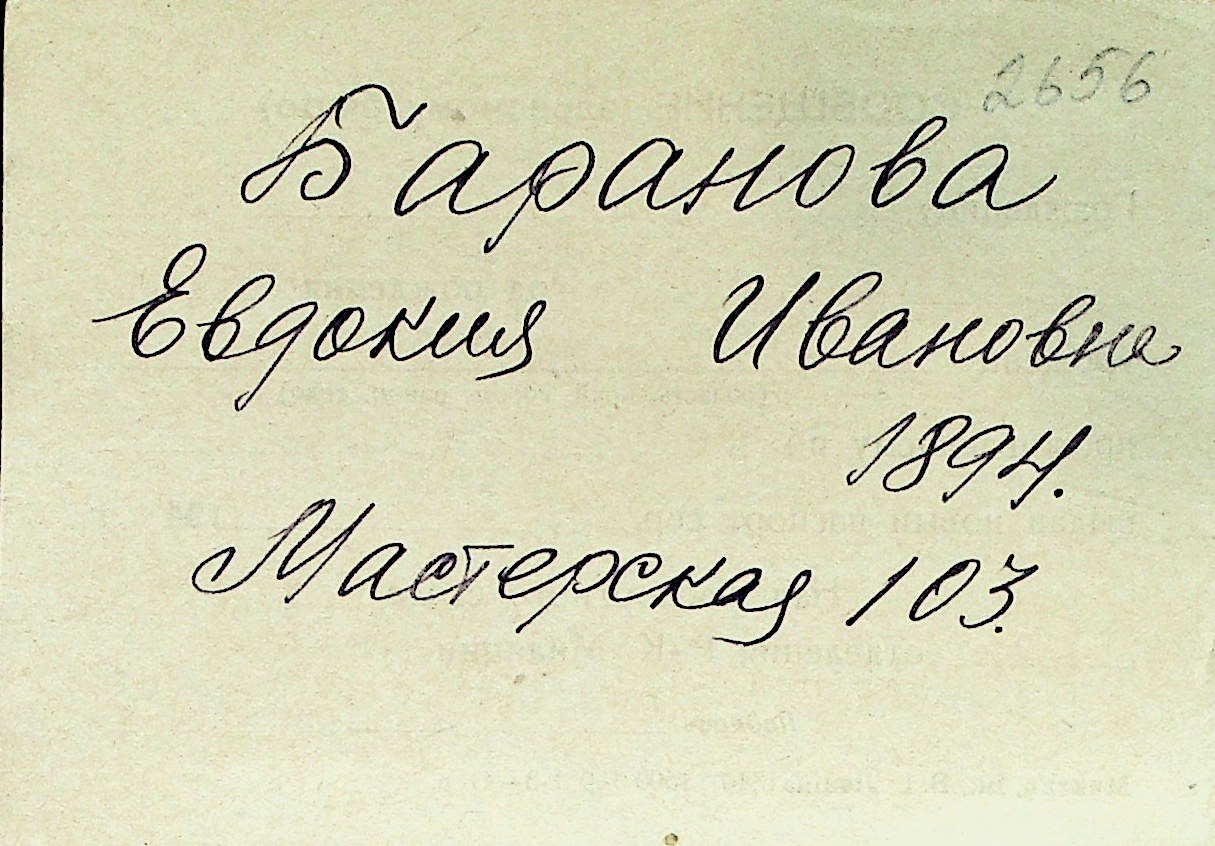 2656
Баранова
Евдокия Ивановна
1894.
Мастерская 103.